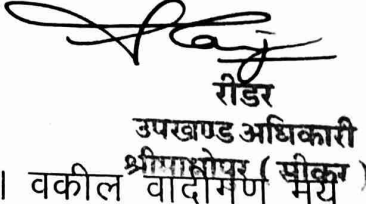 रीडर
उपखण्ड अधिकारी
श्रीमाधोपुर ( सीकर )
। वकील वादीगण मय